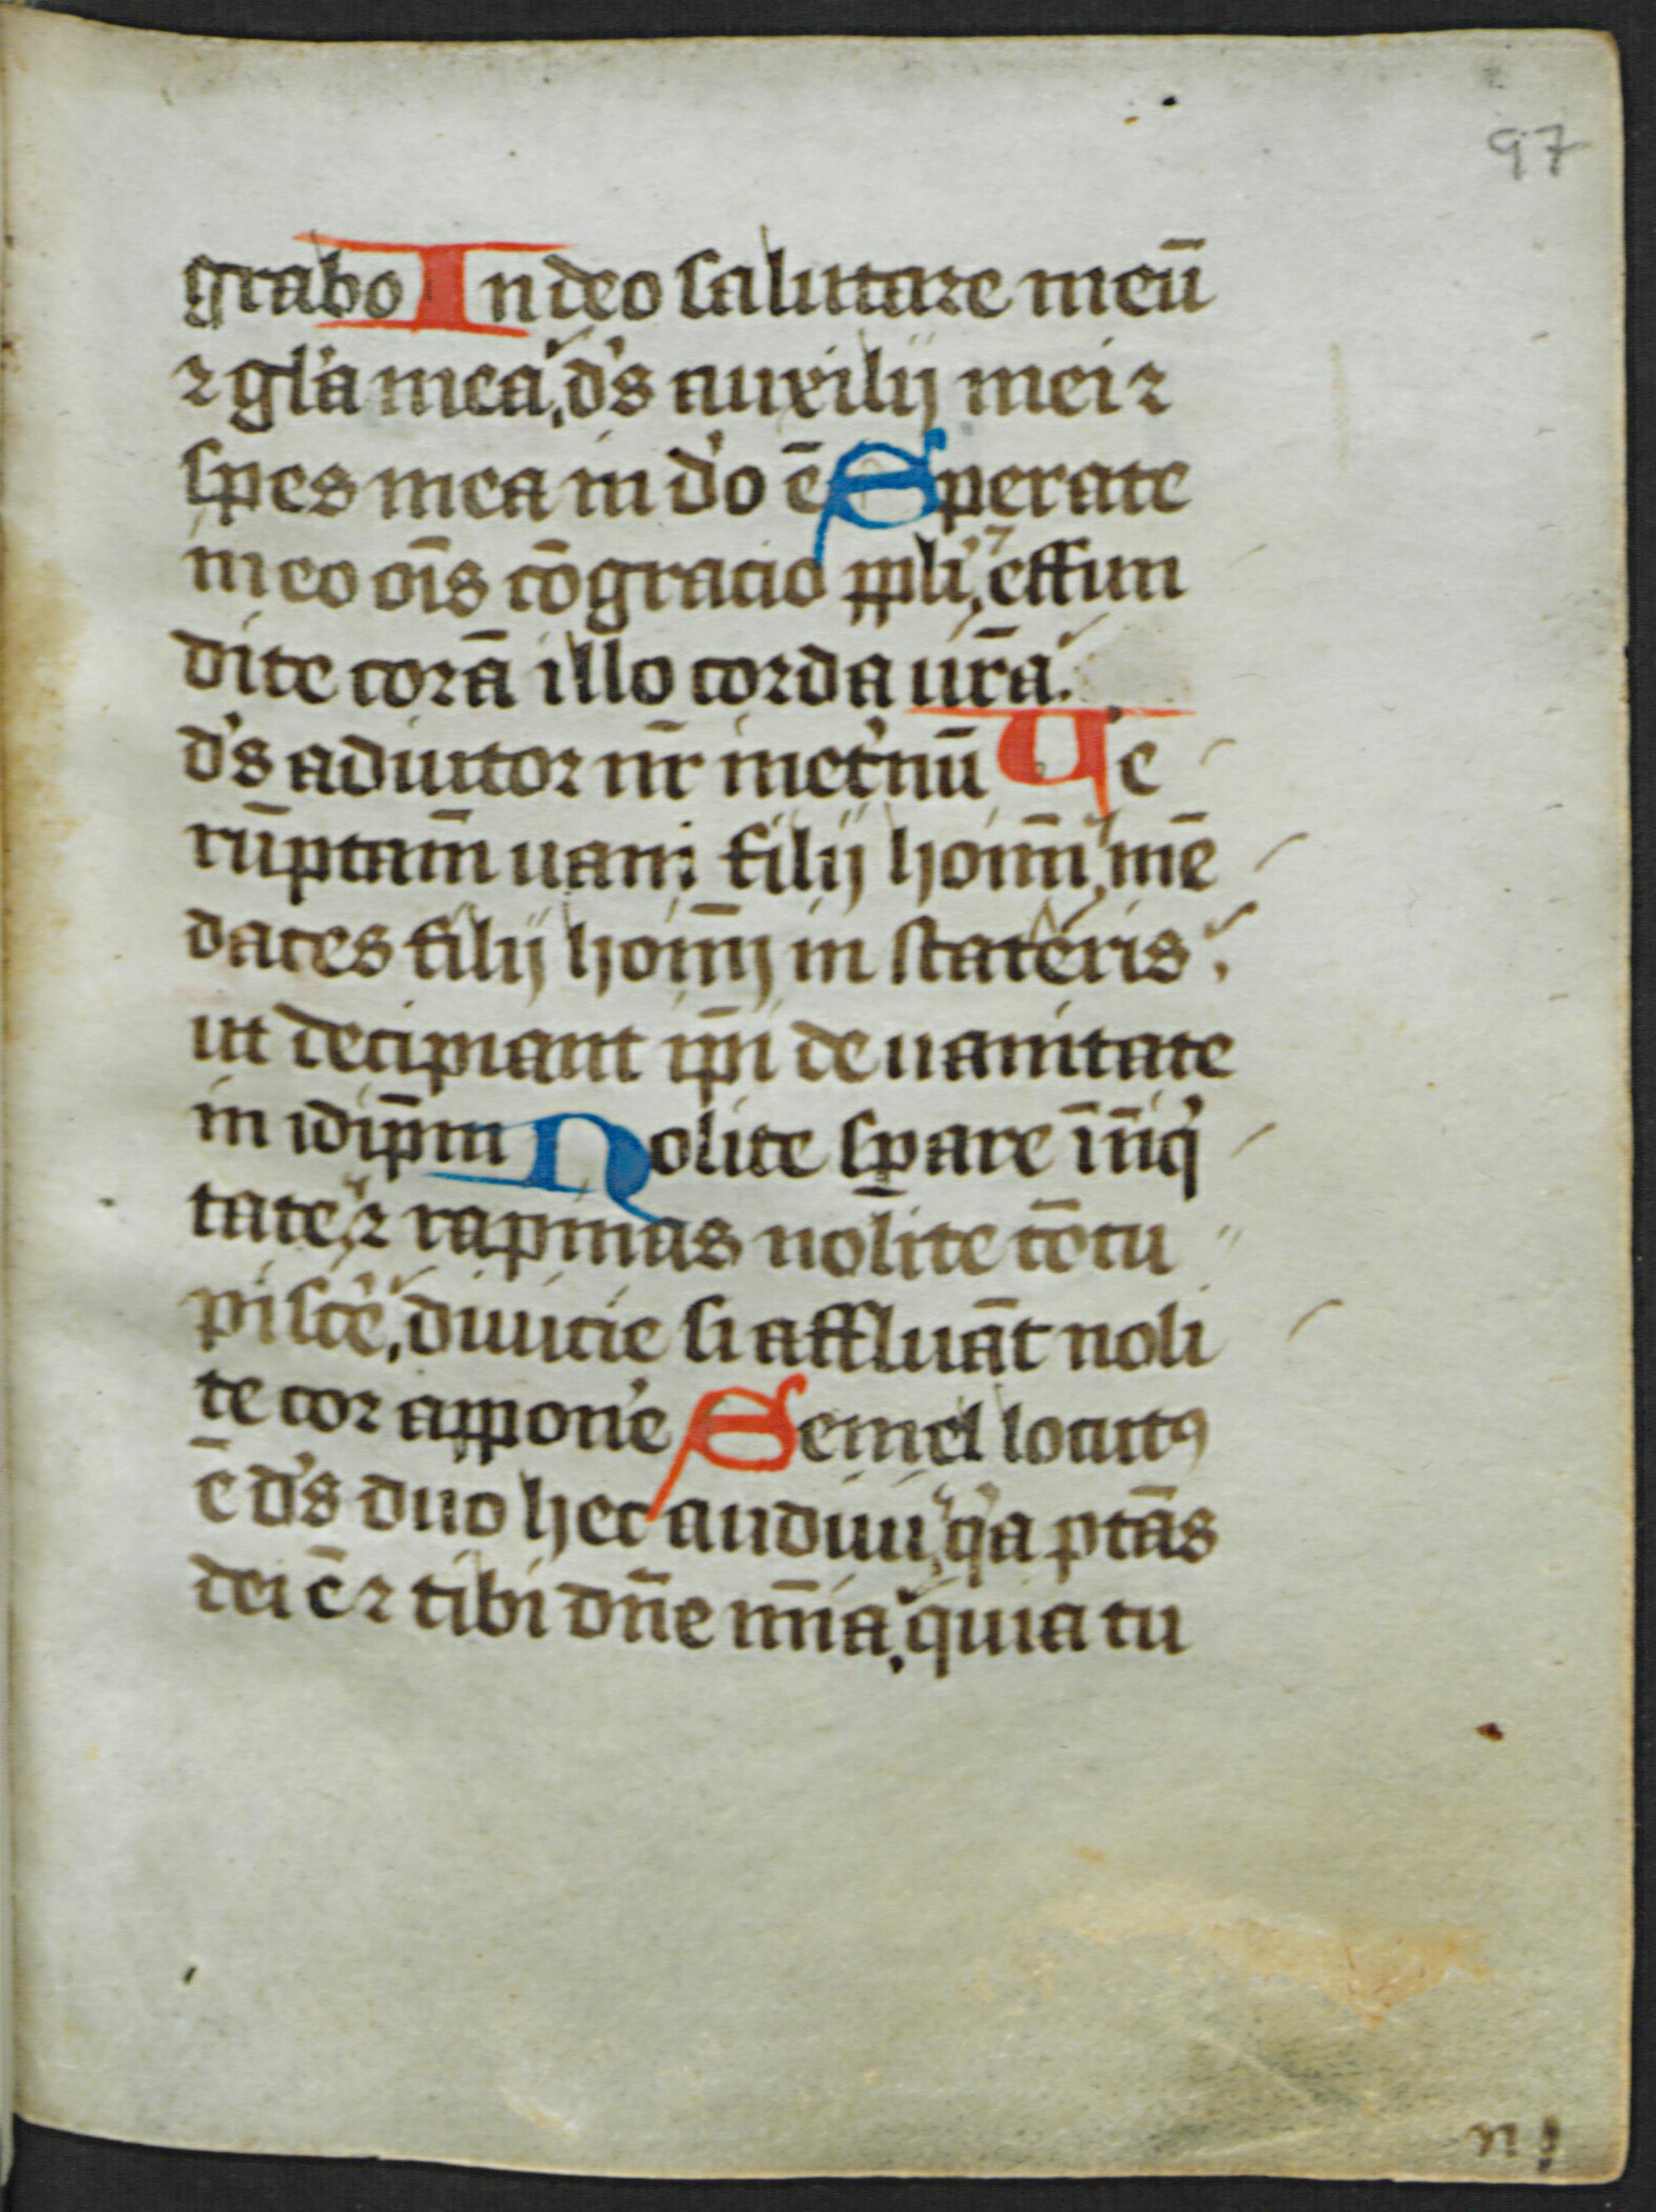 97
grabo In deo salutare meū
⁊ gl'a mea, d's auxilij mei ⁊
spes mea in d'o ē Sperate
in eo oīs cōgracio ppl'i, effun
dite corā illo corda ur̄a.
d's adiutor nr̄ inet'nū Ue
rūptam̄ uani filij homī, mē
daces filij homī in stateris,
ut decipiant ip̄i de uanitate
in idip̄m Nolite sꝑare īniq̇
tate, ⁊ rapinas nolite cōcu
pisce', diuicie si affluāt noli
te cor appone' Semel locutꝰ
ē d's duo hec audiui, q'a ptās
dei ē ⁊ tibi dn̄e mīa, quia tu
n j